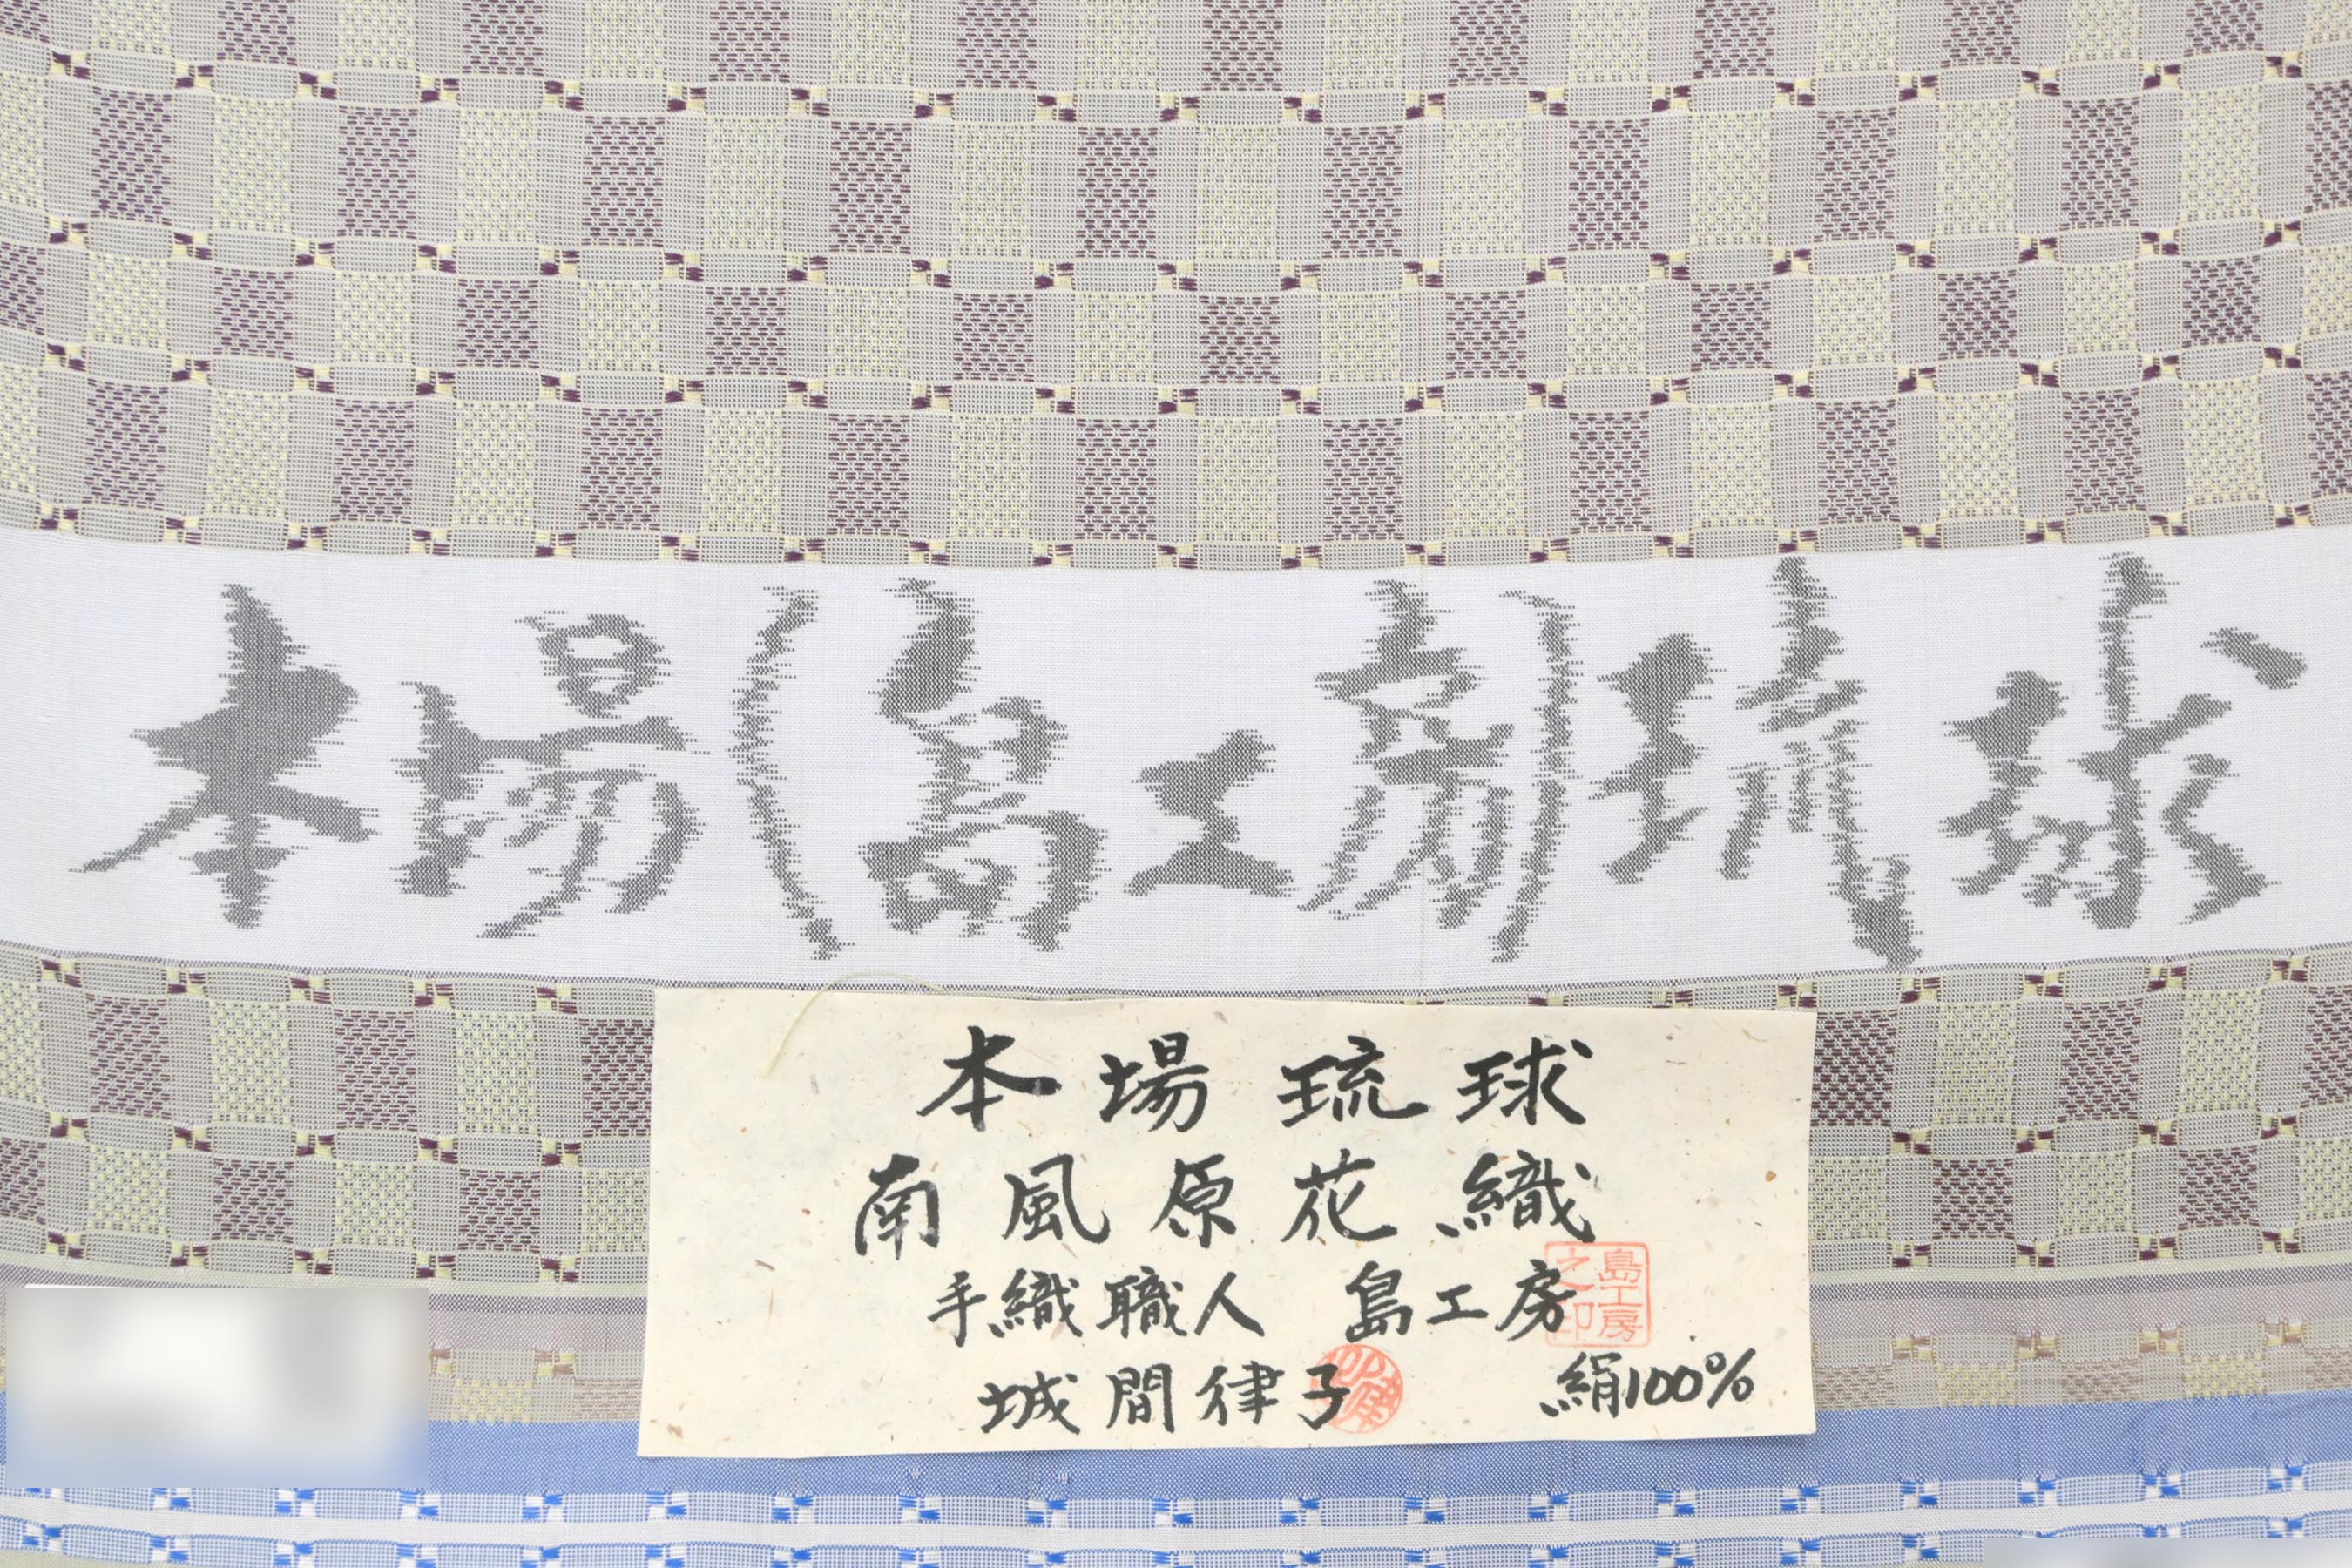 本場(島工房)琉球
本場琉球
南風原花織
手織職人 島工房
城間律子 絹100%
島工房之印